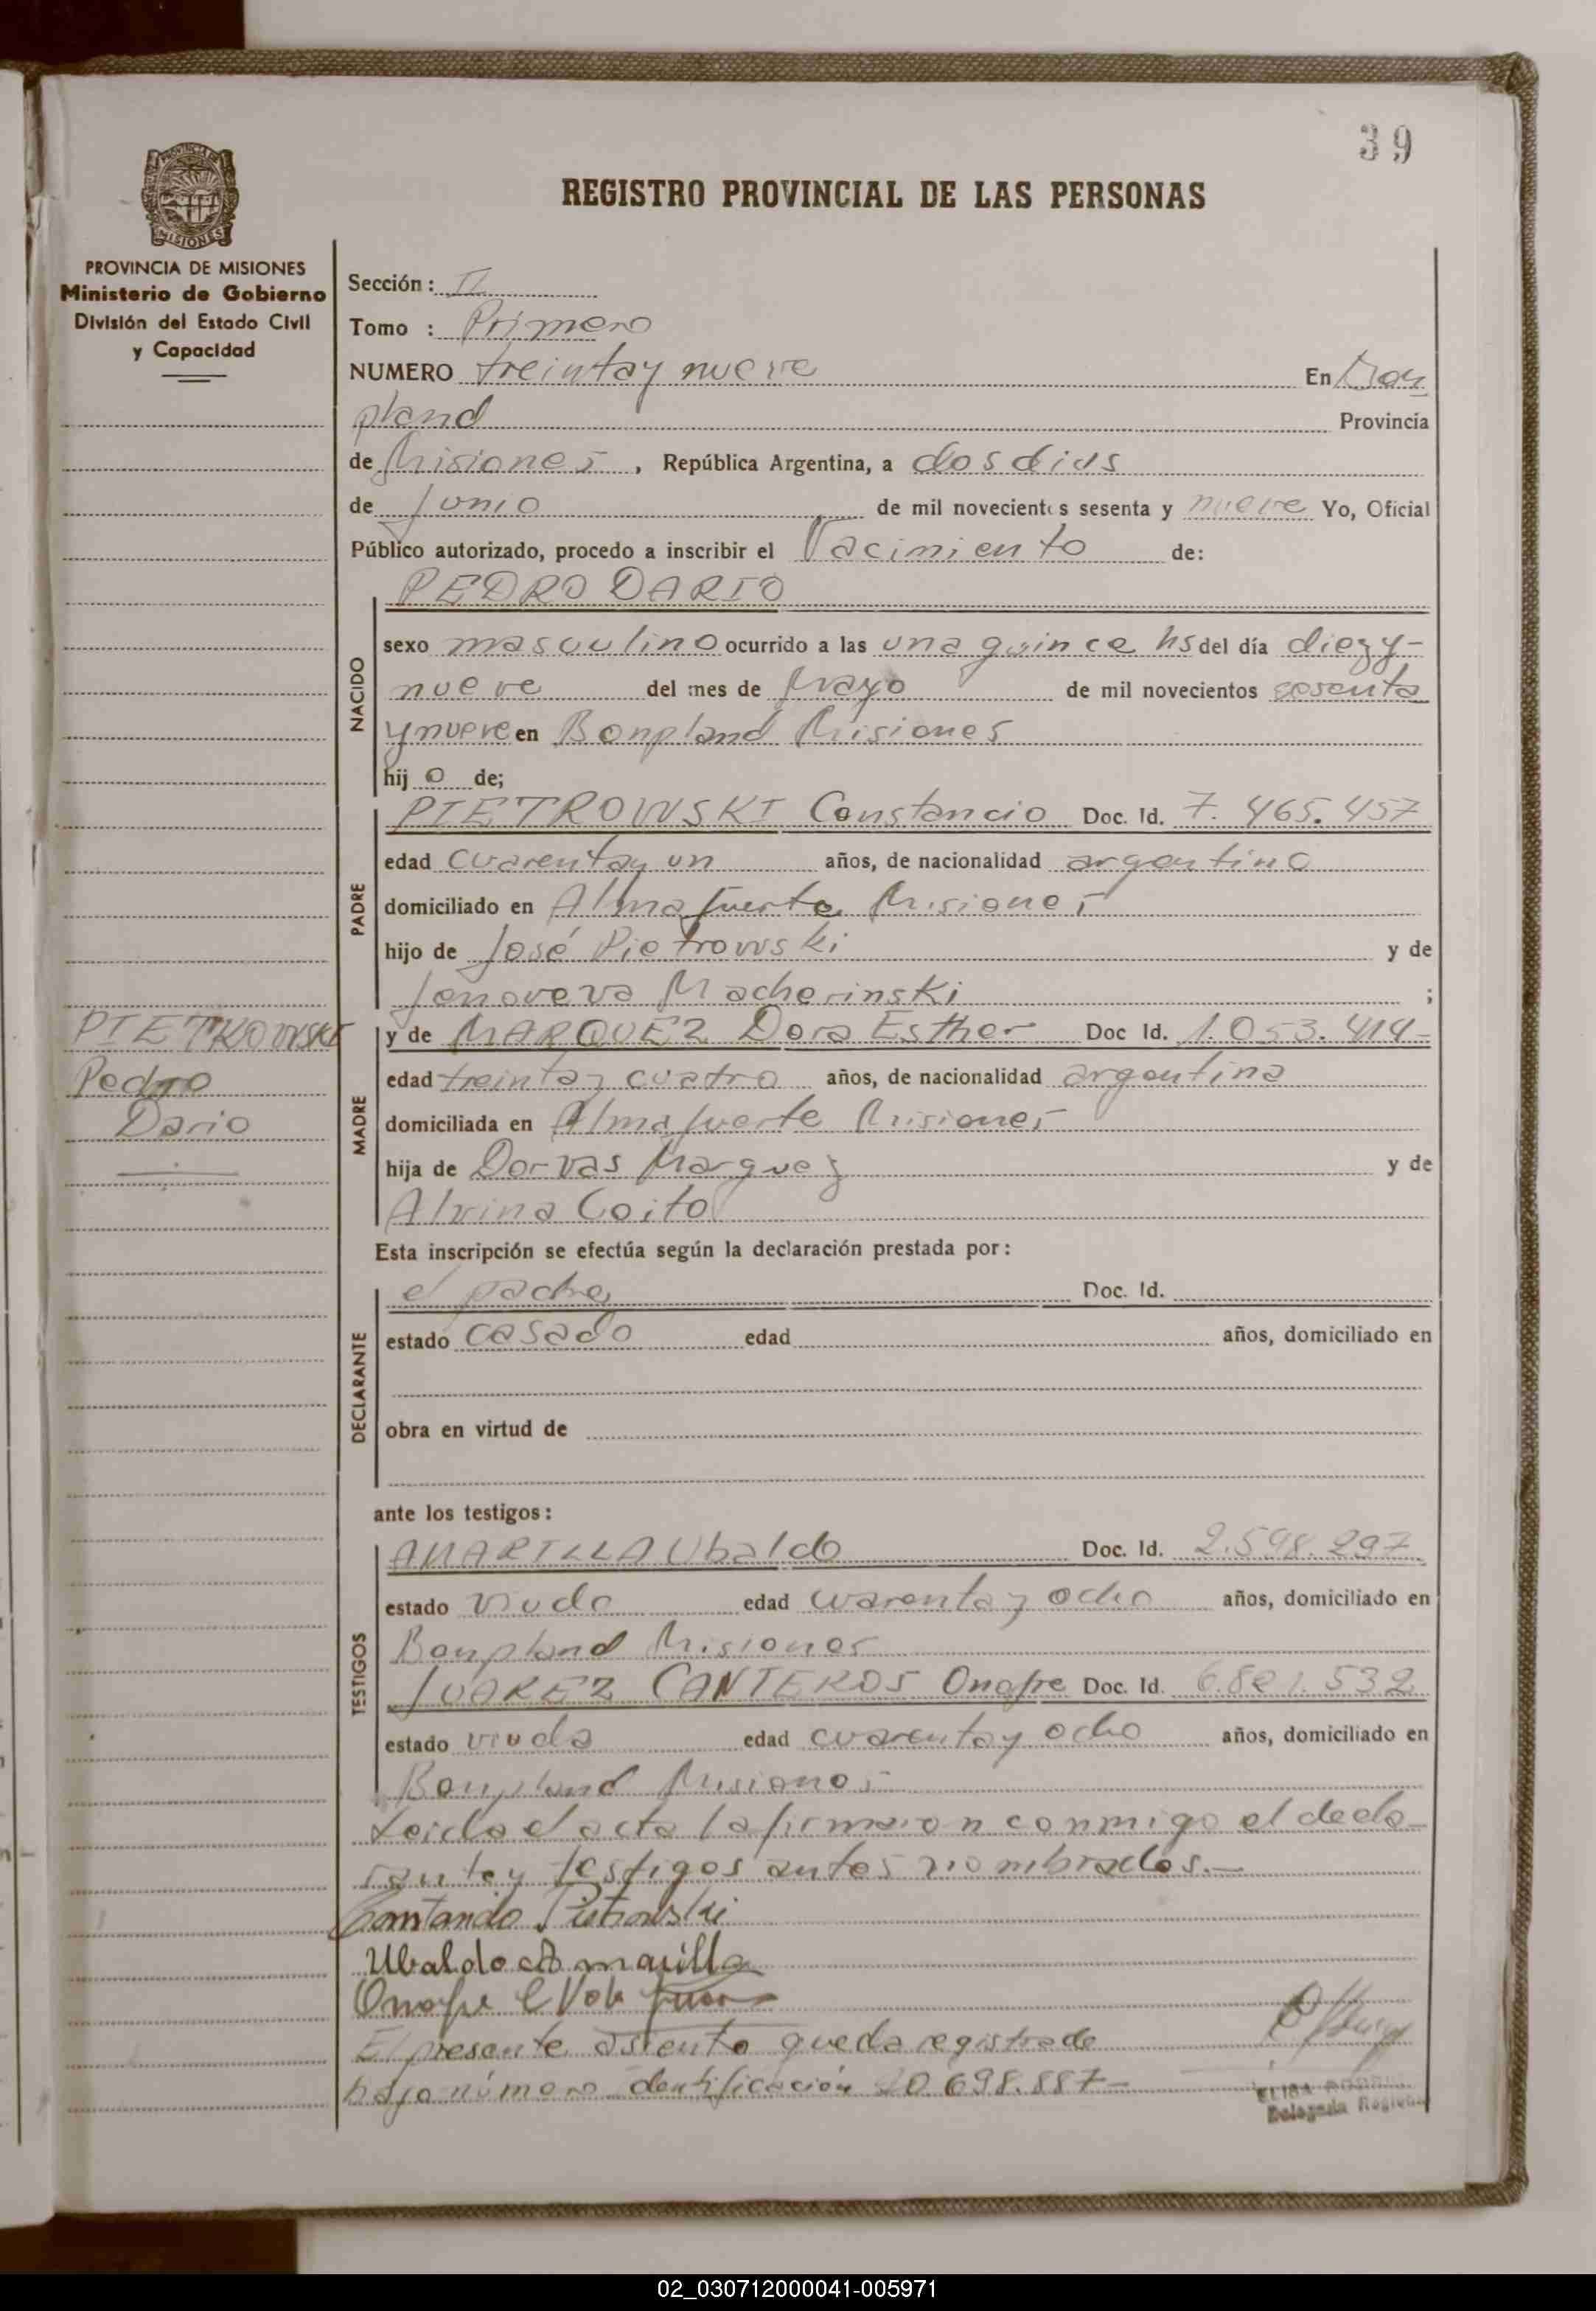 39
REGISTRO PROVINCIAL DE LAS PERSONAS
MISIONES
PROVINCIA DE MISIONES
Ministerio de Gobierno
División del Estado Civil
y Capacidad
PIETROWSKI
Pedro
Dario
Sección: II
Tomo : Primero
NUMERO treinta y nueve En Bon
pland Provincia
de Misiones, República Argentina, a dos dias
de Junio de mil novecientos sesenta y nueve Yo, Oficial
Público autorizado, procedo a inscribir el Nacimiento de:
NACIDO
PEDRO DARIO
sexo masculino ocurrido a las una quince hs del día diez y-
nueve del mes de Mayo de mil novecientos sesenta
y nueve en Bonpland Misiones
hij o de;
PADRE
PIETROWSKI Constancio Doc. Id. 7.465.457
edad cuarenta y un años, de nacionalidad argentino
domiciliado en Almafuerte Misiones
hijo de José Pietrowski y de
Jenoveva Macherinski ;
MADRE
y de MARQUEZ Dora Esther Doc Id. 1.053.414-
edad treinta y cuatro años, de nacionalidad argentina
domiciliada en Almafuerte Misiones
hija de Dorvas Marquez y de
Alvina Coito
Esta inscripción se efectúa según la declaración prestada por:
DECLARANTE
el padre Doc. Id.
estado casado edad años, domiciliado en
obra en virtud de
ante los testigos:
TESTIGOS
AMARILLA Ubaldo Doc. Id. 2.598.297
estado viudo edad cuarenta y ocho años, domiciliado en
Bonpland Misiones
JUAREZ CANTEROS Onofre Doc. Id. 6.821.532
estado viuda edad cuarenta y ocho años, domiciliado en
Bonpland Misiones
Leida el acta la firmaron conmigo el decla-
rante y testigos antes nombrados.-
Pietrowski
Ubaldo Amarilla
Onofre
El presente asiento queda registrado
bajo número identificación 20.698.887-
ELISA
Delegada Regional
02_030712000041-005971